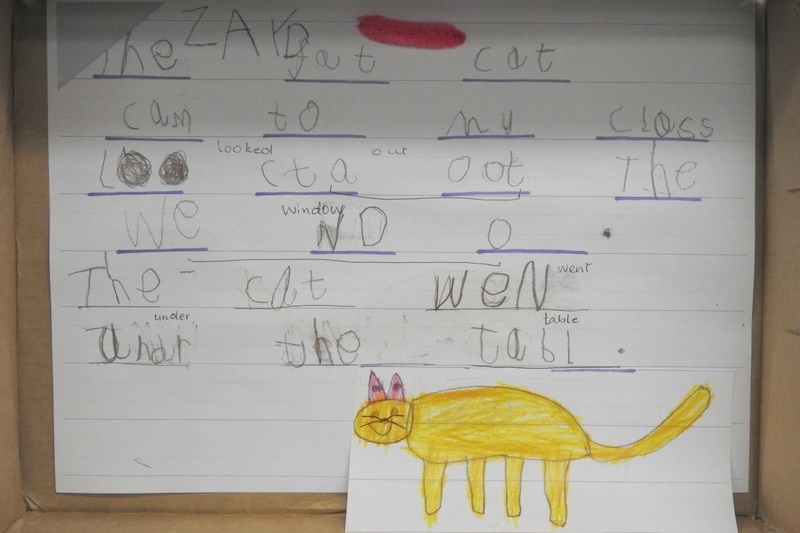 ZAYD
The fat cat
cam to my Closs
looked out
Loo cta oot The
window
we ND o .
went
The cat weN
under table
undr the tabl .